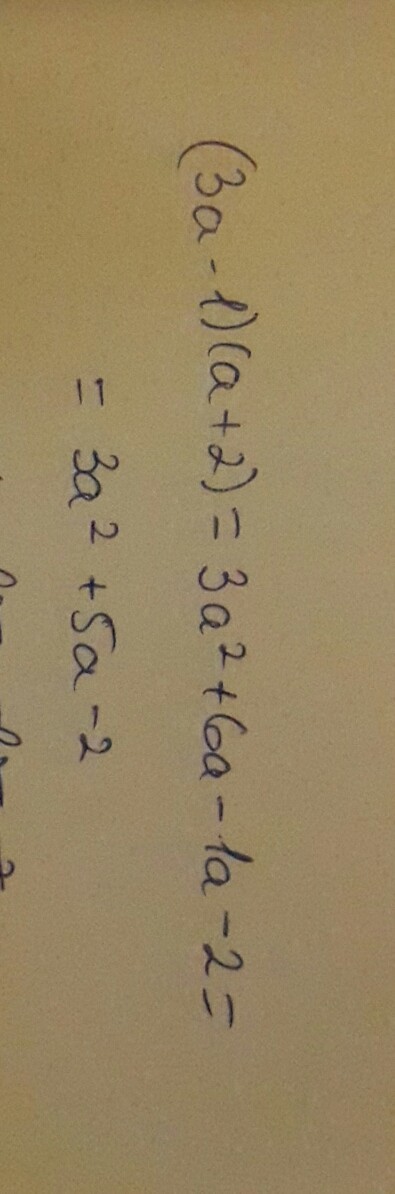 (3a - 1)(a + 2) = 3a² + 6a - 1a - 2 =
= 3a² + 5a - 2